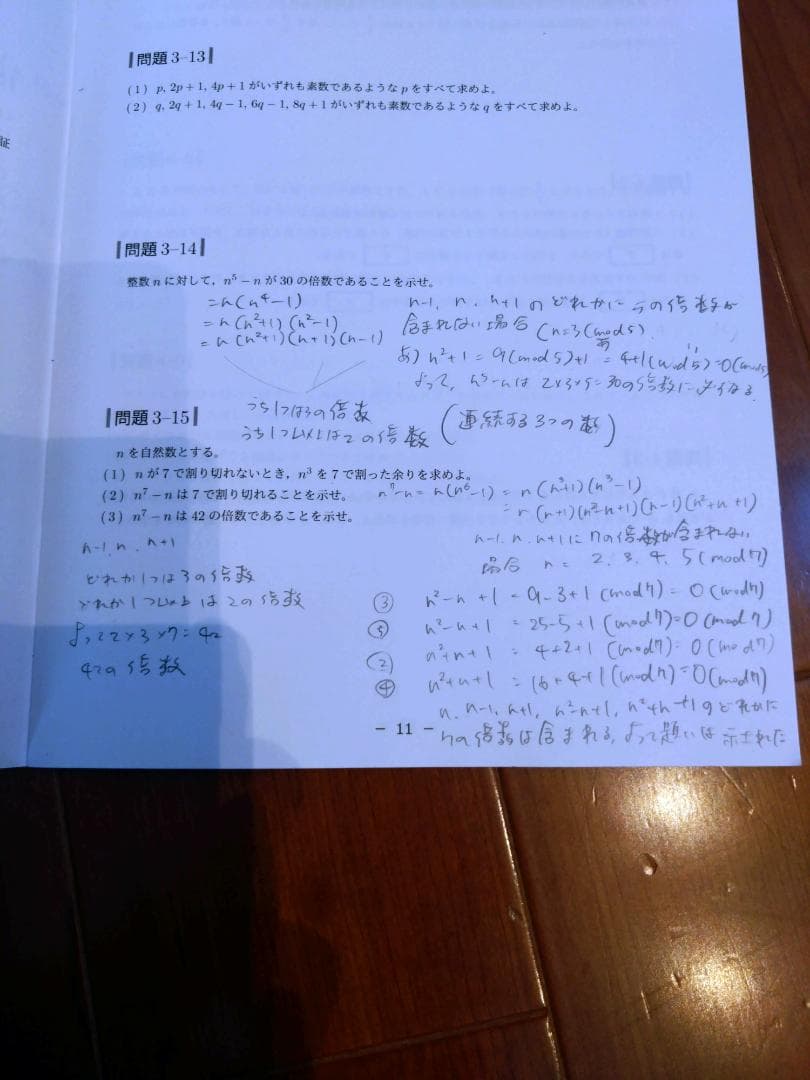 証
問題 3–13
(1) p, 2p + 1, 4p + 1 がいずれも素数であるような p をすべて求めよ。
(2) q, 2q + 1, 4q − 1, 6q − 1, 8q + 1 がいずれも素数であるような q をすべて求めよ。
問題 3–14
整数 n に対して，n⁵ − n が 30 の倍数であることを示せ。
= n(n⁴−1)
= n(n²+1)(n²−1)
= n(n²+1)(n+1)(n−1)
n-1, n, n+1 のどれかに 5の倍数が
含まれない場合 (n=3(mod5)
あ) n²+1 = 9(mod5)+1 = 4+1(mod5)=0(mod5)
よって、n⁵-nは 2×3×5=30の倍数に必ずなる
うち1つは3の倍数
うち1つ以上は2の倍数 (連続する3つの数)
問題 3–15
n を自然数とする。
(1) n が 7 で割り切れないとき，n³ を 7 で割った余りを求めよ。
(2) n⁷ − n は 7 で割り切れることを示せ。 n⁷-n = n(n⁶-1) = n(n³+1)(n³-1)
= n(n+1)(n²-n+1)(n-1)(n²+n+1)
(3) n⁷ − n は 42 の倍数であることを示せ。
n-1, n, n+1 に 7の倍数が含まれない
場合 n = 2, 3, 4, 5 (mod7)
n-1, n, n+1
どれか1つは3の倍数
どれか1つ以上は2の倍数
よって 2×3×7=42
42の倍数
③ n²-n+1 = 9-3+1 (mod7) = 0 (mod7)
⑤ n²-n+1 = 25-5+1 (mod7)=0 (mod7)
② n²+n+1 = 4+2+1 (mod7)=0 (mod7)
④ n²+n+1 = 16+4+1 (mod7)=0 (mod7)
n, n-1, n+1, n²-n+1, n²+n+1 のどれかに
7の倍数は含まれる, よって題いは示された
− 11 −